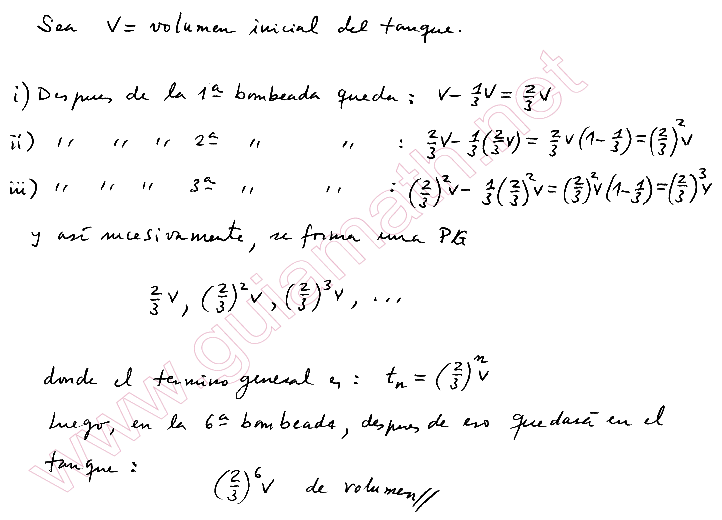 Sea V = volumen inicial del tanque.
i) Despues de la 1ª bombeada queda : V - 1/3 V = 2/3 V
ii) " " " 2ª " " : 2/3 V - 1/3 (2/3 V) = 2/3 V (1 - 1/3) = (2/3)² V
iii) " " " 3ª " " : (2/3)² V - 1/3 (2/3)² V = (2/3)² V (1 - 1/3) = (2/3)³ V
y así sucesivamente, se forma una PG
2/3 V, (2/3)² V, (2/3)³ V, ...
donde el termino general es : tₙ = (2/3)ⁿ V
luego, en la 6ª bombeada, despues de eso quedará en el
tanque :
(2/3)⁶ V de volumen//
www.guiamath.net